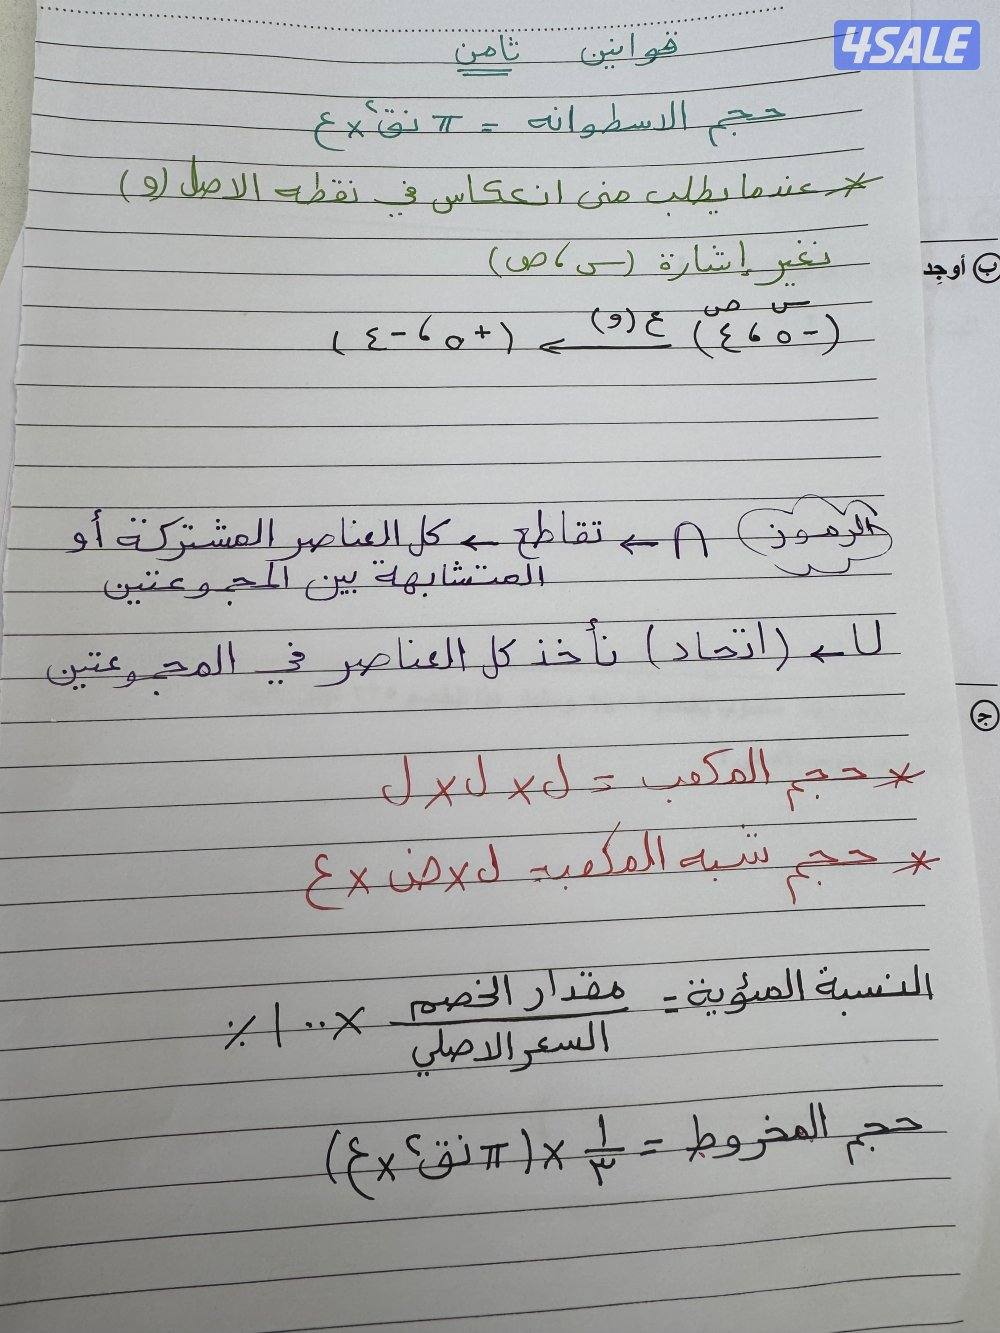 4SALE
قوانين ثامن
حجم الاسطوانه = π نق² × ع
* عندما يطلب منى انعكاس في نقطه الاصل (و)
نغير إشارة (س ، ص)
س ص
(-٥ ، ٤) ع (و) ← (+٥ ، -٤)
الرموز ∩ ← تقاطع ← كل العناصر المشتركة أو
المتشابهة بين المجموعتين
∪ ← (اتحاد) نأخذ كل العناصر في المجموعتين
* حجم المكعب = ل × ل × ل
* حجم شبه المكعب = ل × ض × ع
النسبة المئوية = مقدار الخصم / السعر الاصلي × ١٠٠ ٪
حجم المخروط = ١/٣ × (π نق² × ع)
ب أوجد
ج